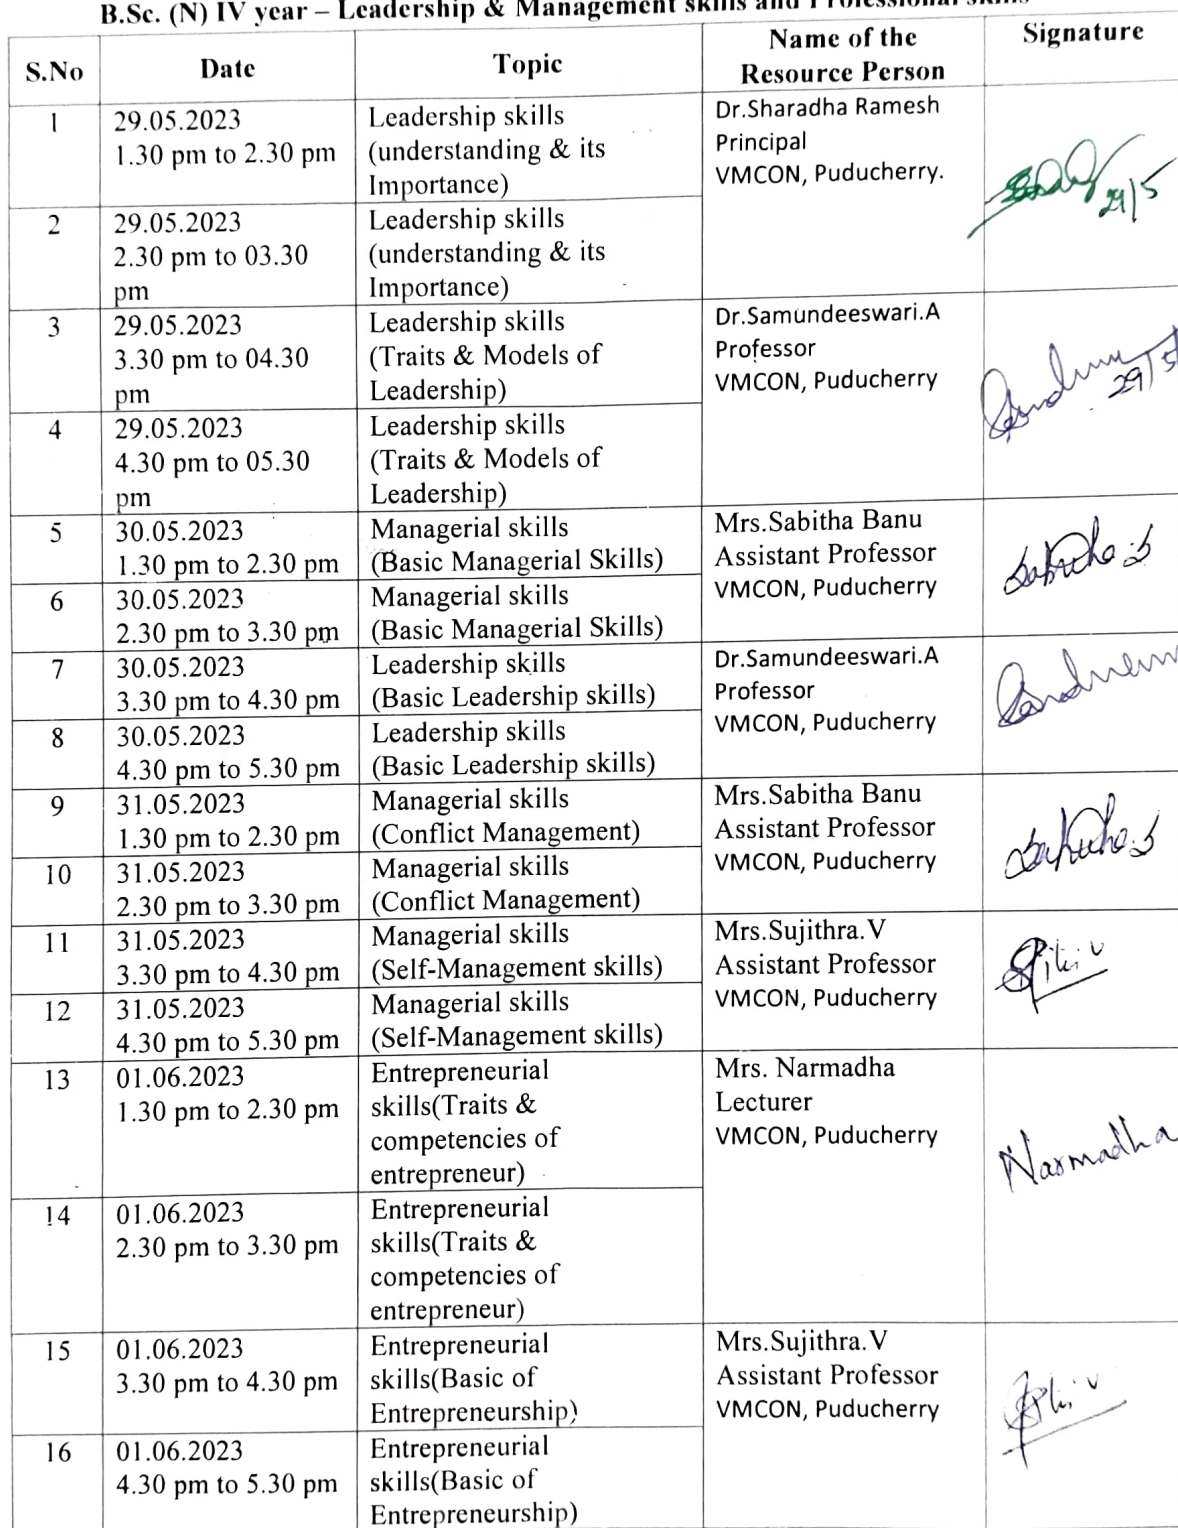 B.Sc. (N) IV year – Leadership & Management skills and Professional skills
S.No
Date
Topic
Name of the
Resource Person
Signature
1
29.05.2023
1.30 pm to 2.30 pm
Leadership skills
(understanding & its
Importance)
Dr.Sharadha Ramesh
Principal
VMCON, Puducherry.
29/5
2
29.05.2023
2.30 pm to 03.30
pm
Leadership skills
(understanding & its
Importance)
3
29.05.2023
3.30 pm to 04.30
pm
Leadership skills
(Traits & Models of
Leadership)
Dr.Samundeeswari.A
Professor
VMCON, Puducherry
29/5
4
29.05.2023
4.30 pm to 05.30
pm
Leadership skills
(Traits & Models of
Leadership)
5
30.05.2023
1.30 pm to 2.30 pm
Managerial skills
(Basic Managerial Skills)
Mrs.Sabitha Banu
Assistant Professor
VMCON, Puducherry
6
30.05.2023
2.30 pm to 3.30 pm
Managerial skills
(Basic Managerial Skills)
7
30.05.2023
3.30 pm to 4.30 pm
Leadership skills
(Basic Leadership skills)
Dr.Samundeeswari.A
Professor
VMCON, Puducherry
8
30.05.2023
4.30 pm to 5.30 pm
Leadership skills
(Basic Leadership skills)
9
31.05.2023
1.30 pm to 2.30 pm
Managerial skills
(Conflict Management)
Mrs.Sabitha Banu
Assistant Professor
VMCON, Puducherry
10
31.05.2023
2.30 pm to 3.30 pm
Managerial skills
(Conflict Management)
11
31.05.2023
3.30 pm to 4.30 pm
Managerial skills
(Self-Management skills)
Mrs.Sujithra.V
Assistant Professor
VMCON, Puducherry
12
31.05.2023
4.30 pm to 5.30 pm
Managerial skills
(Self-Management skills)
13
01.06.2023
1.30 pm to 2.30 pm
Entrepreneurial
skills(Traits &
competencies of
entrepreneur)
Mrs. Narmadha
Lecturer
VMCON, Puducherry
Narmadha
14
01.06.2023
2.30 pm to 3.30 pm
Entrepreneurial
skills(Traits &
competencies of
entrepreneur)
15
01.06.2023
3.30 pm to 4.30 pm
Entrepreneurial
skills(Basic of
Entrepreneurship)
Mrs.Sujithra.V
Assistant Professor
VMCON, Puducherry
16
01.06.2023
4.30 pm to 5.30 pm
Entrepreneurial
skills(Basic of
Entrepreneurship)